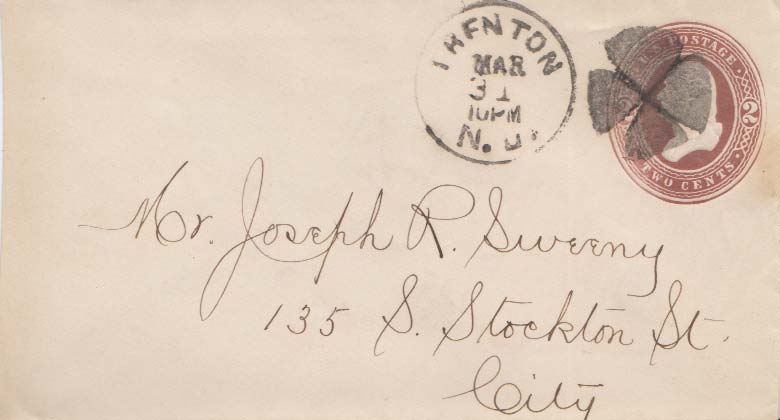 TRENTON
MAR
31
10PM
N. J.
U.S. POSTAGE
2 2
TWO CENTS
Mr. Joseph R. Sweeny
135 S. Stockton St.
City